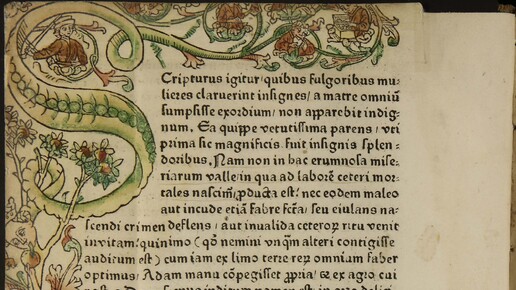 Scripturus igitur/quibus fulgoribus mu-
lieres claruerint insignes/a matre omniū
sumpsisse exordium/non apparebit indig-
num. Ea quippe vetutissima parens/vti
prima sic magnificis. fuit insignis splen-
doribus. Nam non in hac erumnosa mise-
riarum valle/in qua ad laborē ceteri mor-
tales nascim̃/ꝓducta est: nec eodem maleo
aut incude etiā fabrefcta/seu eiulans na-
scendi crimen deflens/aut inualida ceteroꝝ ritu venit
in vitam: quinimo (qd̃ nemini vnqm̃ alteri contigisse
auditum est) cum iam ex limo terre reꝝ omnium faber
optimus/Adam manu cōpegisset ꝓpria/& ex agro cui